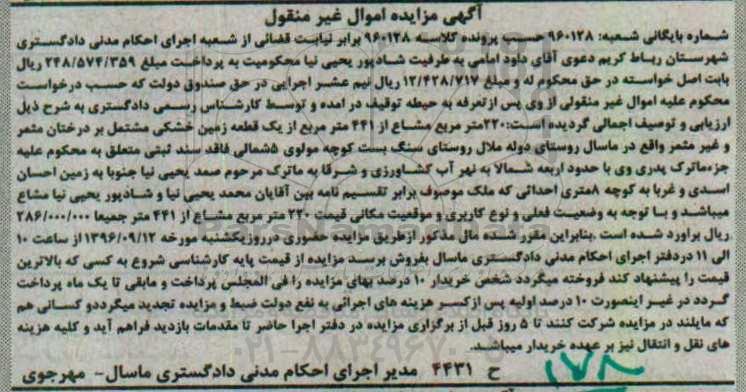 آگهی مزایده اموال غیر منقول
شماره بایگانی شعبه: ۹۶۰۱۲۸ حسب پرونده کلاسه ۹۶۰۱۲۸ برابر نیابت قضائی از شعبه اجرای احکام مدنی دادگستری
شهرستان رباط کریم دعوی آقای داود امامی به طرفیت شادپور یحیی نیا محکومیت به پرداخت مبلغ ۲۴۸/۵۷۴/۳۵۹ ریال
بابت اصل خواسته در حق محکوم له و مبلغ ۱۲/۴۲۸/۷۱۷ ریال نیم عشر اجرایی در حق صندوق دولت که حسب درخواست
محکوم علیه اموال غیر منقولی از وی پس ازتعرفه به حیطه توقیف در امده و توسط کارشناس رسمی دادگستری به شرح ذیل
ارزیابی و توصیف اجمالی گردیده است:۲۲۰متر مربع مشاع از ۴۴۱ متر مربع از یک قطعه زمین خشکی مشتمل بر درختان مثمر
و غیر مثمر واقع در ماسال روستای دوله ملال روستای سنگ بست کوچه مولوی ۵شمالی فاقد سند ثبتی متعلق به محکوم علیه
جزءماترک پدری وی با حدود اربعه شمالا به نهر آب کشاورزی و شرقا به ماترک مرحوم صمد یحیی نیا جنوبا به زمین احسان
اسدی و غربا به کوچه ۸متری احداثی که ملک موصوف برابر تقسیم نامه بین آقایان محمد یحیی نیا و شادپور یحیی نیا مشاع
میباشد و با توجه به وضعیت فعلی و نوع کاربری و موقعیت مکانی قیمت ۲۲۰ متر مربع مشاع از ۴۴۱ متر جمیعا ۲۸۶/۰۰۰/۰۰۰
ریال براورد شده است .بنابراین مقرر شده مال مذکور ازطریق مزایده حضوری درروزیکشنبه مورخه ۱۳۹۶/۰۹/۱۲ از ساعت ۱۰
الی ۱۱ دردفتر اجرای احکام مدنی دادگستری ماسال بفروش برسد مزایده از قیمت پایه کارشناسی شروع به کسی که بالاترین
قیمت را پیشنهاد کند فروخته میگردد شخص خریدار ۱۰ درصد بهای مزایده را فی المجلس پرداخت و مابقی تا یک ماه پرداخت
گردد در غیر اینصورت ۱۰ درصد اولیه پس ازکسر هزینه های اجرائی به نفع دولت ضبط و مزایده تجدید میگرددو کسانی هم
که مایلند در مزایده شرکت کنند تا ۵ روز قبل از برگزاری مزایده در دفتر اجرا حاضر تا مقدمات بازدید فراهم آید و کلیه هزینه
های نقل و انتقال نیز بر عهده خریدار میباشد.
ح ۴۴۳۱ مدیر اجرای احکام مدنی دادگستری ماسال- مهرجوی
۱۷۸
ParsNamadData
۰۲۱-۸۸۳۴۹۶۷۰-۵